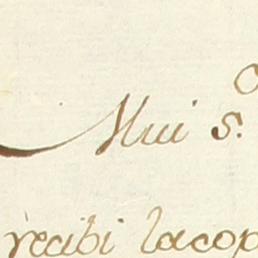 Mui s.
recibi la cop